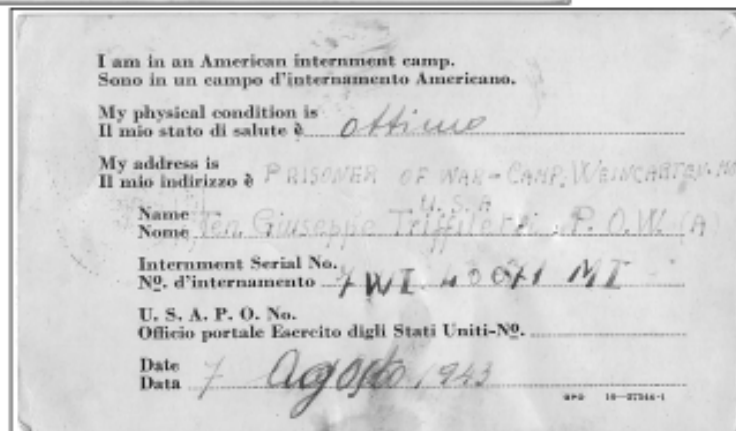 I am in an American internment camp.
Sono in un campo d'internamento Americano.
My physical condition is
Il mio stato di salute è ottimo
My address is
Il mio indirizzo è PRISONER OF WAR - CAMP. WEINGARTEN. MO
U.S.A
Name
Nome Ten. Giuseppe P.O.W. (A)
Internment Serial No.
Nº. d'internamento 7WI MI
U. S. A. P. O. No.
Officio portale Esercito digli Stati Uniti-Nº.
Date
Data 7 agosto 1943
GPO